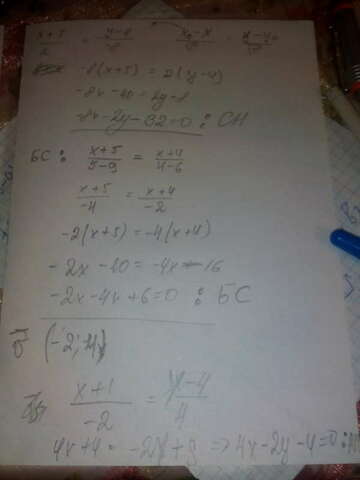 -8(x+5) = 2(y-4)
-8x-40 = 2y-8
-8x-2y-32=0 : CH
БС: (x+5)/(5-9) = (x+4)/(4-6)
(x+5)/(-4) = (x+4)/(-2)
-2(x+5) = -4(x+4)
-2x-10 = -4x-16
-2x-4x+6=0 : БС
(-2; 4)
(x+1)/(-2) = (y-4)/4
4x+4 = -2y+8 => 4x-2y-4=0: